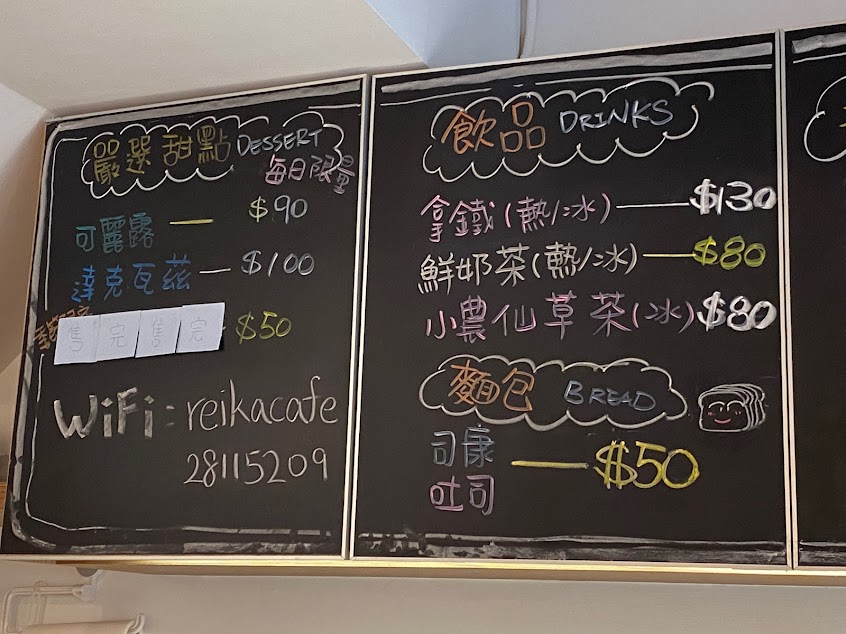 嚴選甜點 DESSERT
每日限量
可麗露 — $90
達克瓦茲 — $100
售完售完 $50
WiFi: reikacafe
28115209
飲品 DRINKS
拿鐵(熱/冰) — $130
鮮奶茶(熱/冰) — $80
小農仙草茶(冰) $80
麵包 BREAD
司康 — $50
吐司